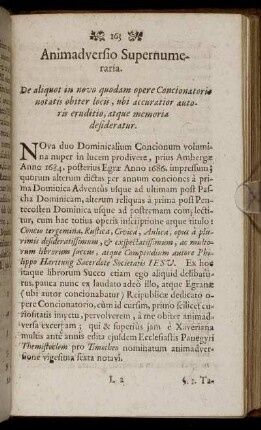 163
Animadversio Supernume-
raria.
De aliquot in novo quodam opere Concionatorio
notatis obiter locis, ubi accuratior auto-
ris eruditio, atque memoria
desideratur.
NOva duo Dominicalium Concionum volumi-
na nuper in lucem prodivere, prius Ambergæ
Anno 1684. posterius Egræ Anno 1686. impressum;
quorum alterum dictas per annum conciones à pri-
ma Dominica Adventus usque ad ultimam post Pas-
cha Dominicam, alterum reliquas à prima post Pen-
tecosten Dominica usque ad postremam com, lecti-
tur, cum hac totius operis inscriptione atque titulo:
Conciu tergemina, Rustica, Civica, Aulica, opus à plu-
rimis desideratissimum, & exspectatissimum, as multo-
rum librorum succus, atque Compendium autore Phi-
lippo Hartung Sacerdote Societatis JESU. Ex hoc
itaque librorum Succo etiam ego aliquid delibatu-
rus, pauca nunc ex laudato adeò illo, atque Egranæ
(ubi autor concionabatur) Reipublicæ dedicato o-
pere Concionatorio, cùm id cursim, primo scilicet cu-
riositatis impetu, pervolverem, à me obiter animad-
versa excerpam; qui & superius jam è Xaveriana
multis antè annis edita ejusdem Ecclesiastis Panegyri
Themistoclem pro Timotheo nominatum animadver-
sione vigesima sexta notavi.
L 2
§. 1. Ta-